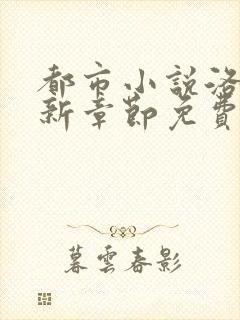 都市小說洛
新章節免費
暮雲春影